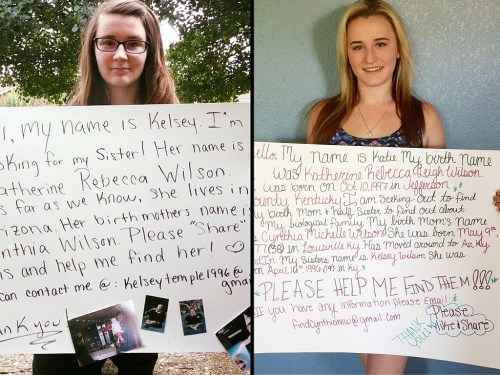 i, my name is Kelsey. I'm
oking for my Sister! Her name is
atherine Rebecca Wilson.
s far as we know, she lives in
rizona. Her birthmothers name is
nthia Wilson. Please "Share"
is and help me find her! ♡
can contact me @: Kelseytemple1996@
gmai
ank you!
Hello. My name is Katie My birth Name
Was Katherine Rebecca Leigh Wilson
I was born on Oct 10, 1997 in Jefferson
County Kentucky. I am Seeking Out to find
my birth Mom & Half Sister to find out about
My biological family. My birth Mom's Name
Is Cynthia Michelle Wilson She was born May 9th
(38) in Louisville Ky. Has Moved around to Az, Ky,
And In. My Sisters name is Kelsey Wilson She was
Born April 16th 1996 (19) in Ky.
PLEASE HELP ME FIND THEM!!!
IF you have any information Please Email:
findCynthiamw@gmail.com
THANK YOU!
Please
like & Share